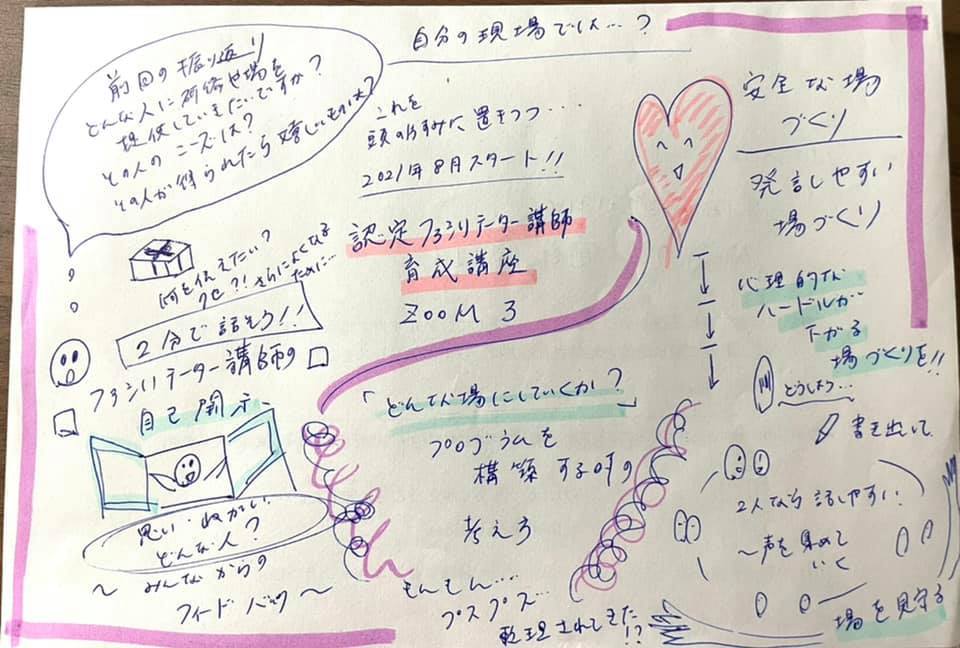 前回の振り返り
どんな人に研修や場を
提供していきたいですか?
その人のニーズは?
その人が得られたら嬉しいものは?
自分の現場では…?
これを
頭のすみに置きつつ・・・
2021年8月スタート!!
認定ファシリテーター講師
育成講座
ZOOM 3
何を伝えたい?
クセ?!さらによくなる
ために…
2分で話そう!!
ファシリテーター講師の
自己開示
思い・ねがい
どんな人?
〜みんなからの
フィードバック〜
「どんな場にしていくか?」
プログラムを
構築する时の
考え方
もんもん…
プスプス…
整理されてきた
!?
安全な場
づくり
発言しやすい
場づくり
心理的な
ハードルが
下がる
場づくりを!!
どうしよう…
書き出して
2人なら話しやすい!
〜声を集めて
いく
場を見守る